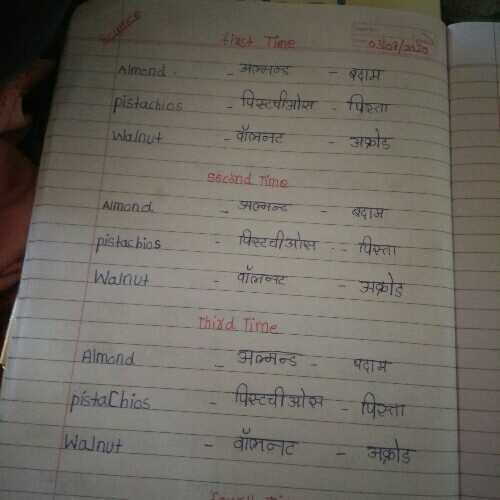 Science
First Time 03/07/2020
Almond - अल्मन्ड - बदाम
pistachios - पिस्टचीओस - पिस्ता
Walnut - वॉलनट - अक्रोड
Second Time
Almond - अल्मन्ड - बदाम
pistachios - पिस्टचीओस - पिस्ता
Walnut - वॉलनट - अक्रोड
Third Time
Almond - अल्मन्ड - बदाम
pistachios - पिस्टचीओस - पिस्ता
Walnut - वॉलनट - अक्रोड